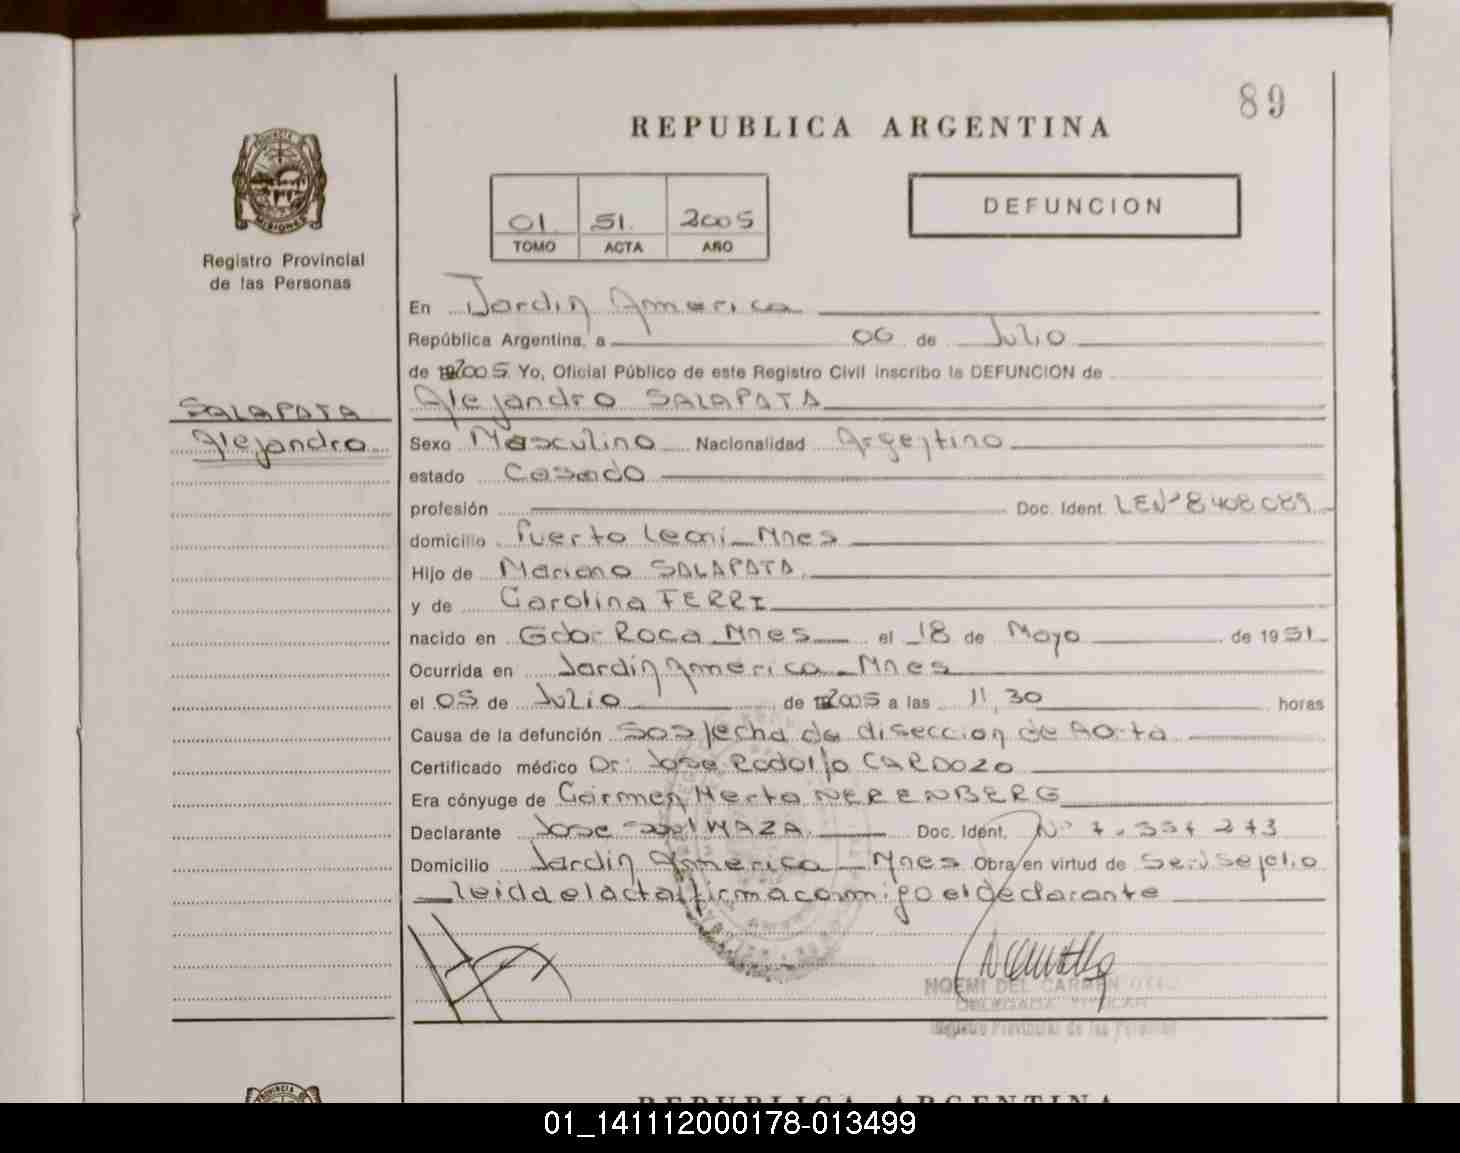 89
REPUBLICA ARGENTINA
PROVINCIA
MISIONES
01. 51. 2005
TOMO ACTA AÑO
DEFUNCION
Registro Provincial
de las Personas
En Jardin America
República Argentina, a 06 de Julio
de 2005. Yo, Oficial Público de este Registro Civil inscribo la DEFUNCION de
SALAPATA
Alejandro
Alejandro SALAPATA
Sexo Masculino Nacionalidad Argentino
estado Casado
profesión Doc. Ident. LENº 8408089
domicilio Puerto Leoni_Mnes
Hijo de Mariano SALAPATA
y de Carolina FERRI
nacido en Gdor Roca_Mnes el 18 de Mayo de 1951
Ocurrida en Jardin America_Mnes
el 05 de Julio de 2005 a las 11,30 horas
Causa de la defunción Sospecha de diseccion de Aorta
Certificado médico Dr: Jose Rodolfo CARDOZO
Era cónyuge de Carmen Herta NERENBERG
Declarante Jose MAZA Doc. Ident. Nº 7.554 273
Domicilio Jardin America_Mnes Obra en virtud de
leida el acta firma conmigo el declarante
NOEMI DEL CARMEN
DELEGADA TITULAR
Registro Provincial de las Personas
PROVINCIA
REPUBLICA ARGENTINA
01_141112000178-013499